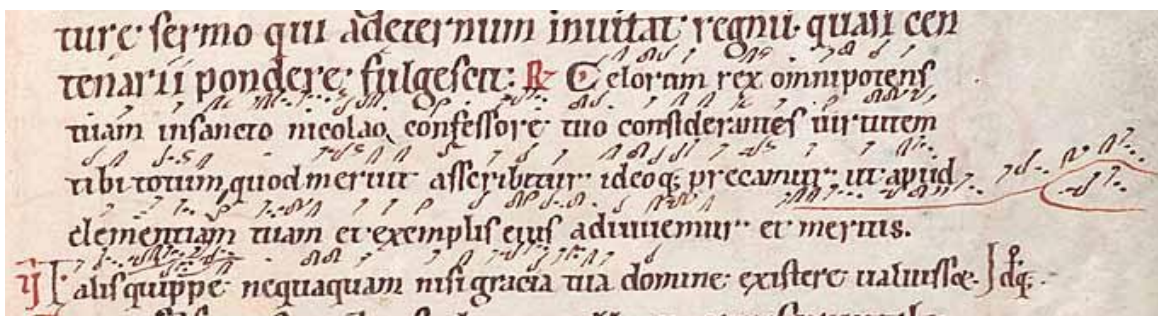 ture sermo qui adeternum inuitat regnū. quasi cen
tenarii pondere fulgescit: R Celorum rex omnipotens
tuam insancto nicolao confessore tuo considerantes uirtutem
tibi totum quod meruit asscribitur ideoq; precamur ut apud
clementiam tuam et exemplis eius adiuuemur et meritis.
alis quippe nequaquam nisi gracia tua domine existere ualuisset.